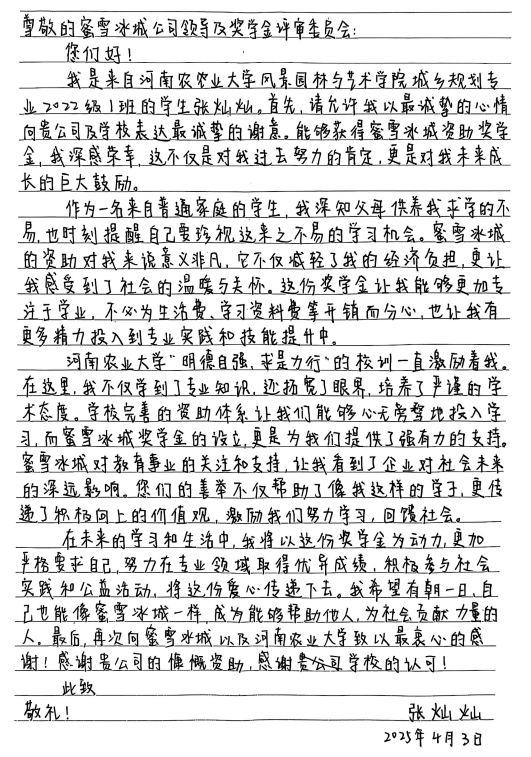 尊敬的蜜雪冰城公司领导及奖学金评审委员会：
您们好！
我是来自河南农农业大学风景园林与艺术学院城乡规划专
业2022级1班的学生张灿灿。首先，请允许我以最诚挚的心情
向贵公司及学校表达最诚挚的谢意。能够获得蜜雪冰城资助奖学
金，我深感荣幸，这不仅是对我过去努力的肯定，更是对我未来成
长的巨大鼓励。
作为一名来自普通家庭的学生，我深知父母供养我求学的不
易，也时刻提醒自己要珍视这来之不易的学习机会。蜜雪冰城
的资助对我来说意义非凡，它不仅减轻了我的经济负担，更让
我感受到了社会的温暖与关怀。这份奖学金让我能够更加专
注于学业，不必为生活费、学习资料费等开销而分心，也让我有
更多精力投入到专业实践和技能提升中。
河南农业大学"明德自强，求是力行"的校训一直激励着我。
在这里，我不仅学到了专业知识，还扬宽了眼界，培养了严谨的学
术态度。学校完善的资助体系让我们能够心无旁骛地投入学
习，而蜜雪冰城奖学金的设立，更是为我们提供了强有力的支持。
蜜雪冰城对教育事业的关注和支持，让我看到了企业对社会未来
的深远影响。您们的善举不仅帮助了像我这样的学子，更传
递了积极向上的价值观，激励我们努力学习，回馈社会。
在未来的学习和生活中，我将以这份奖学金为动力，更加
严格要求自己，努力在专业领域取得优异成绩，积极参与社会
实践和公益活动，将这份爱心传递下去。我希望有朝一日，自
己也能像蜜雪冰城一样，成为能够帮助他人，为社会贡献力量的
人。最后，再次向蜜雪冰城以及河南农业大学致以最衷心的感
谢！感谢贵公司的慷慨资助，感谢学校的认可！
此致
敬礼！
张灿灿
2025年4月3日